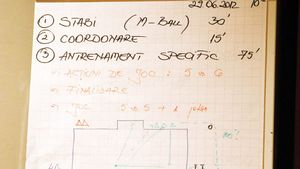 29.06.2012
① STABI (M-BALL) 30'
② COORDONARE 15'
③ ANTRENAMENT SPECIFIC 75'
ACTIUNI DE JOC : 5 vs 6
FINALIZARE
JOC 5 vs 5 +